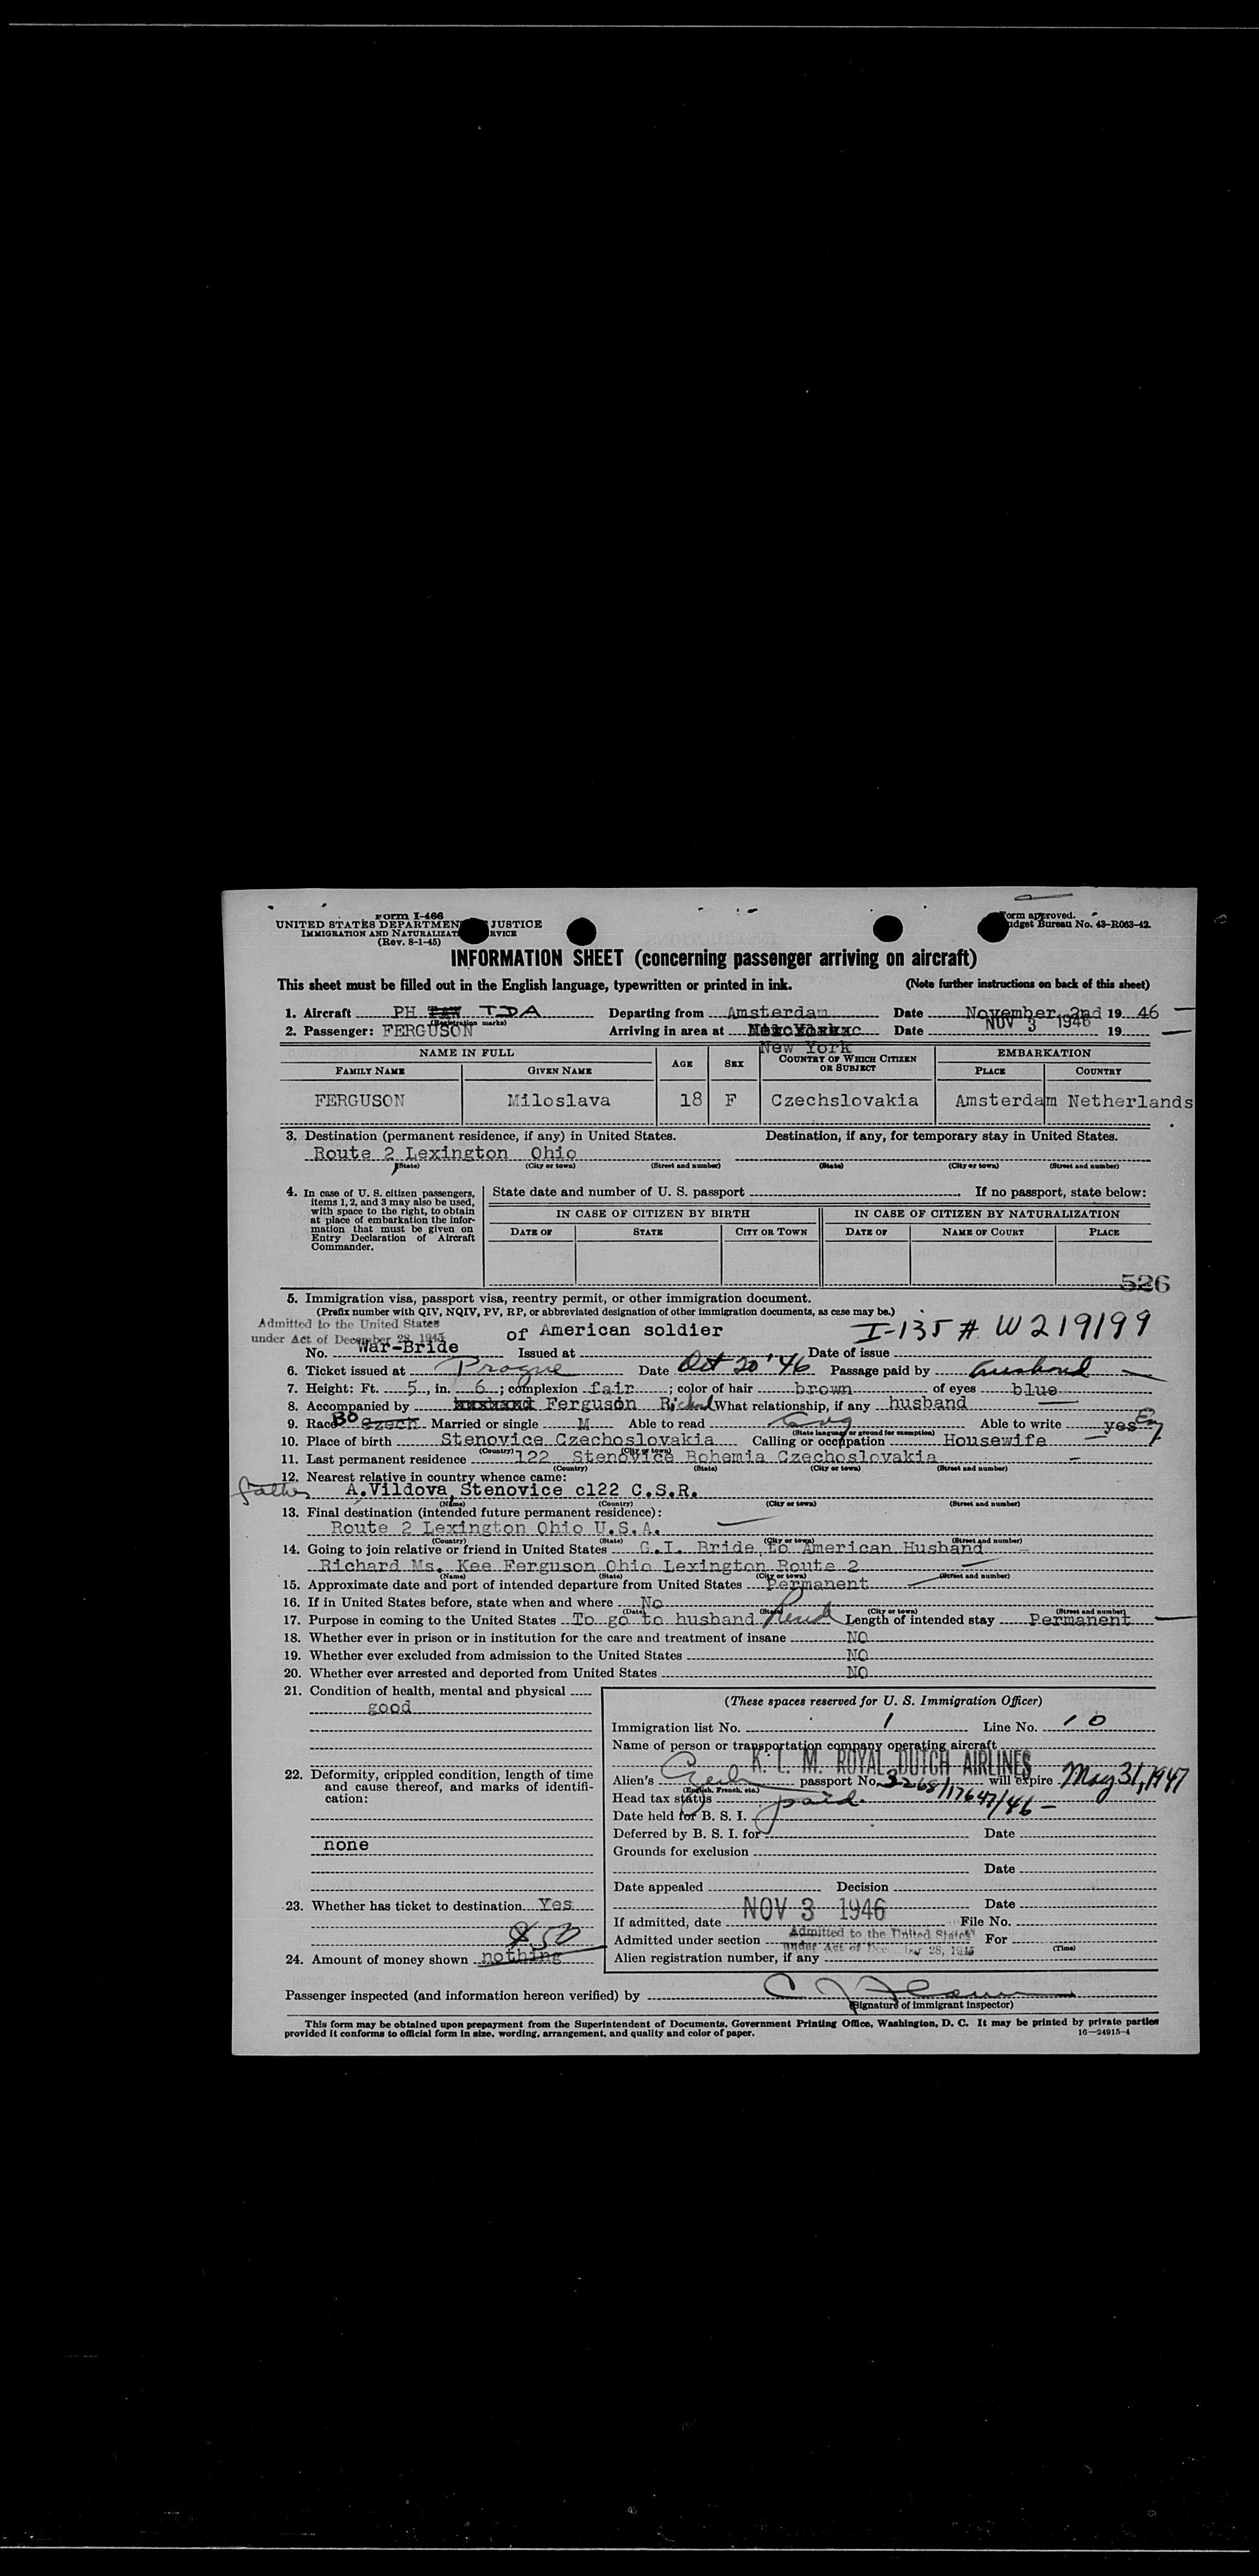 Form I-466
UNITED STATES DEPARTMENT JUSTICE
IMMIGRATION AND NATURALIZAT RVICE
(Rev. 8-1-45)
Form approved.
Budget Bureau No. 43-R063-42.
INFORMATION SHEET (concerning passenger arriving on aircraft)
This sheet must be filled out in the English language, typewritten or printed in ink. (Note further instructions on back of this sheet)
1. Aircraft PH TDA Departing from Amsterdam Date November 2nd 19 46
(Registration marks)
2. Passenger: FERGUSON Arriving in area at New York Date NOV 3 1946 19
NAME IN FULL AGE SEX COUNTRY OF WHICH CITIZEN OR SUBJECT EMBARKATION
FAMILY NAME GIVEN NAME PLACE COUNTRY
FERGUSON Miloslava 18 F Czechslovakia Amsterdam Netherlands
3. Destination (permanent residence, if any) in United States. Destination, if any, for temporary stay in United States.
Route 2 Lexington Ohio
(State) (City or town) (Street and number) (State) (City or town) (Street and number)
4. In case of U. S. citizen passengers, items 1, 2, and 3 may also be used, with space to the right, to obtain at place of embarkation the information that must be given on Entry Declaration of Aircraft Commander.
State date and number of U. S. passport If no passport, state below:
IN CASE OF CITIZEN BY BIRTH IN CASE OF CITIZEN BY NATURALIZATION
DATE OF STATE CITY OR TOWN DATE OF NAME OF COURT PLACE
526
5. Immigration visa, passport visa, reentry permit, or other immigration document.
(Prefix number with QIV, NQIV, PV, RP, or abbreviated designation of other immigration documents, as case may be.)
Admitted to the United States
under Act of December 28, 1945
War-Bride of American soldier I-135 # W219199
No. Issued at Date of issue
6. Ticket issued at Prague Date Oct 20 '46 Passage paid by husband
7. Height: Ft. 5, in. 6; complexion fair; color of hair brown of eyes blue
8. Accompanied by husband Ferguson Richard What relationship, if any husband
9. Race Bo Czech Married or single M Able to read Eng Able to write yes Eng
(State language or ground for exemption)
10. Place of birth Stenovice Czechoslovakia Calling or occupation Housewife
(Country) (City or town)
11. Last permanent residence 122 Stenovice Bohemia Czechoslovakia
(Country) (State) (City or town) (Street and number)
12. Nearest relative in country whence came:
father A.Vildova Stenovice c122 C.S.R.
(Name) (Country) (City or town) (Street and number)
13. Final destination (intended future permanent residence):
Route 2 Lexington Ohio U.S.A.
(Country) (State) (City or town) (Street and number)
14. Going to join relative or friend in United States G.I. Bride to American Husband
Richard Ms. Kee Ferguson Ohio Lexington Route 2
(Name) (State) (City or town) (Street and number)
15. Approximate date and port of intended departure from United States Permanent
16. If in United States before, state when and where No
(Date) (State) (City or town) (Street and number)
17. Purpose in coming to the United States To go to husband Length of intended stay Permanent
18. Whether ever in prison or in institution for the care and treatment of insane NO
19. Whether ever excluded from admission to the United States NO
20. Whether ever arrested and deported from United States NO
21. Condition of health, mental and physical
good
22. Deformity, crippled condition, length of time and cause thereof, and marks of identification:
none
23. Whether has ticket to destination Yes
$50
24. Amount of money shown nothing
(These spaces reserved for U. S. Immigration Officer)
Immigration list No. 1 Line No. 10
Name of person or transportation company operating aircraft
K. L. M. ROYAL DUTCH AIRLINES
Alien's Czech passport No. 3268/17647/46 will expire May 31, 1947
(English, French, etc.)
Head tax status paid
Date held for B. S. I.
Deferred by B. S. I. for Date
Grounds for exclusion
Date
Date appealed Decision
NOV 3 1946 Date
If admitted, date File No.
Admitted under section Admitted to the United States For
under Act of December 28, 1945 (Time)
Alien registration number, if any
Passenger inspected (and information hereon verified) by
(Signature of immigrant inspector)
This form may be obtained upon prepayment from the Superintendent of Documents, Government Printing Office, Washington, D. C. It may be printed by private parties
provided it conforms to official form in size, wording, arrangement, and quality and color of paper. 16—24915-4